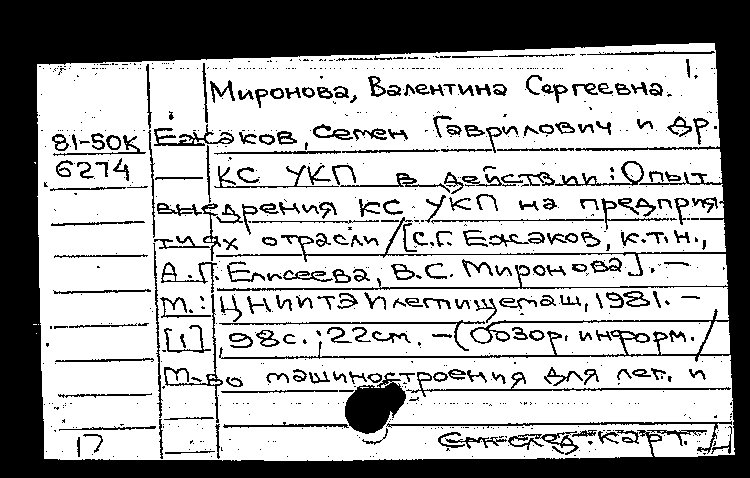 1.
Миронова, Валентина Сергеевна.
81-50К Ежаков, Семен Гаврилович и др.
6274 КС УКП в действии: Опыт
внедрения КС УКП на предприя-
тиях отрасли / [С.Г. Ежаков, к.т.н.,
А.Г. Елисеева, В.С. Миронова]. —
М.: ЦНИИТЭИлегпищемаш, 1981. —
[1], 98с.; 22см. — (Обзор. информ. /
М-во машиностроения для лег. и
17 См. след. карт.